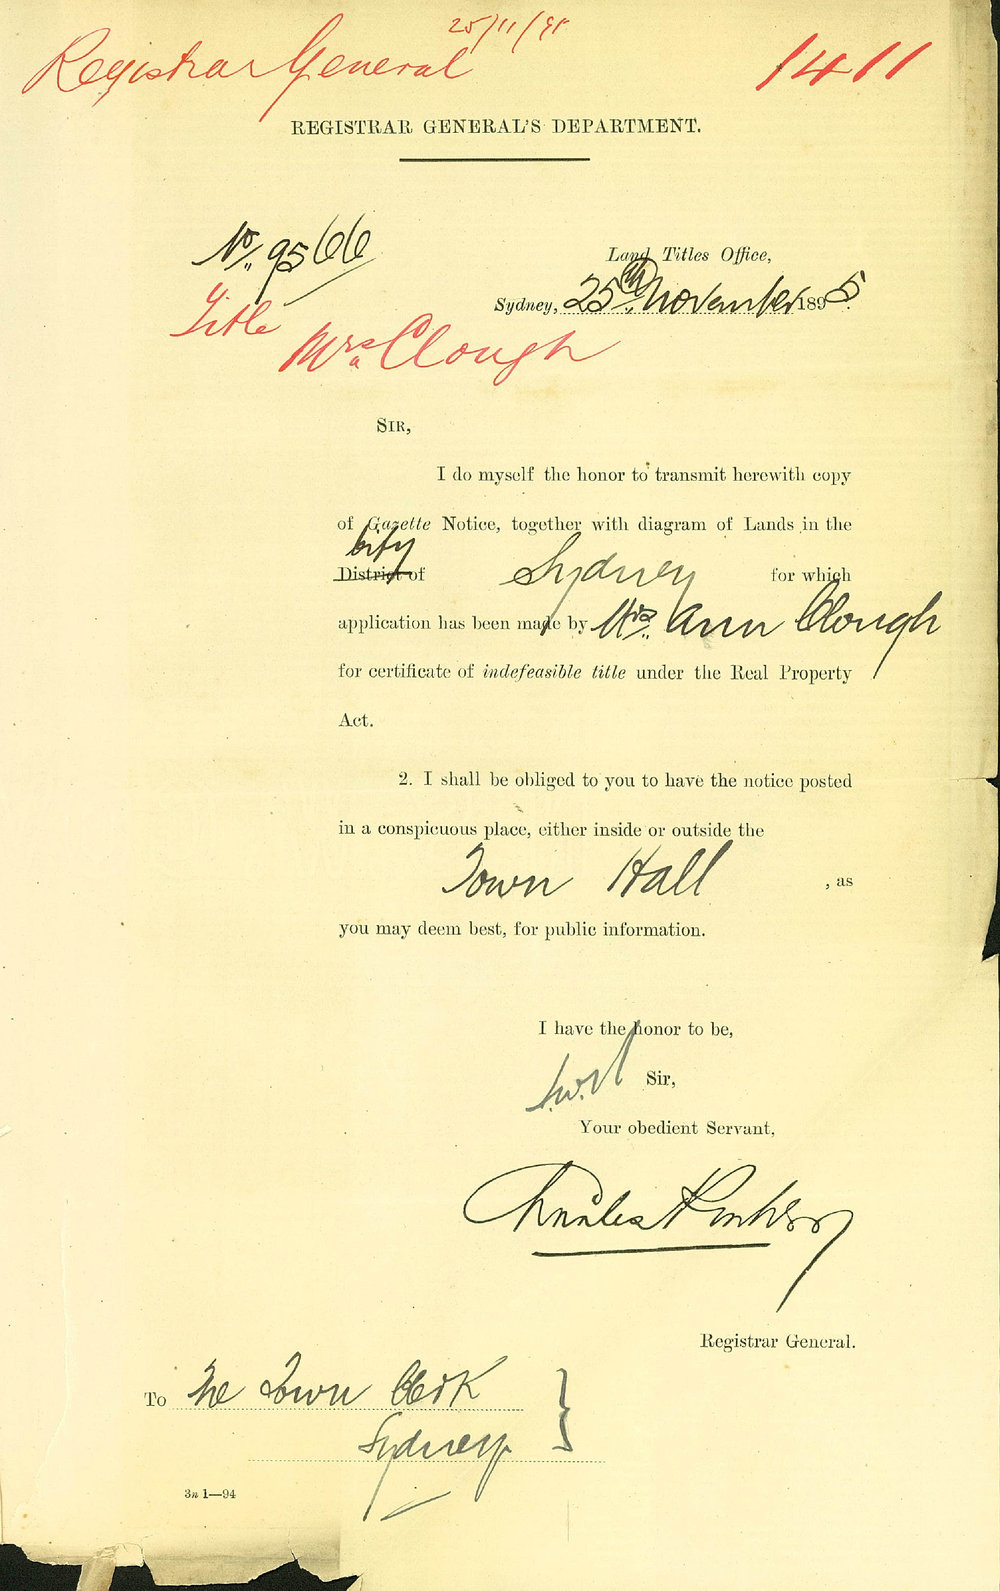 25/11/95
Registrar General
1411
REGISTRAR GENERAL'S DEPARTMENT.
No. 9566
Land Titles Office,
Sydney, 25th November 1895
Title
Mrs a Clough
SIR,
I do myself the honor to transmit herewith copy
of Gazette Notice, together with diagram of Lands in the
City
District of Sydney for which
application has been made by Mrs. Ann Clough
for certificate of indefeasible title under the Real Property
Act.
2. I shall be obliged to you to have the notice posted
in a conspicuous place, either inside or outside the
Town Hall , as
you may deem best, for public information.
I have the honor to be,
Sir,
Your obedient Servant,
Charles
Registrar General.
To The Town Clerk
Sydney
3n 1—94